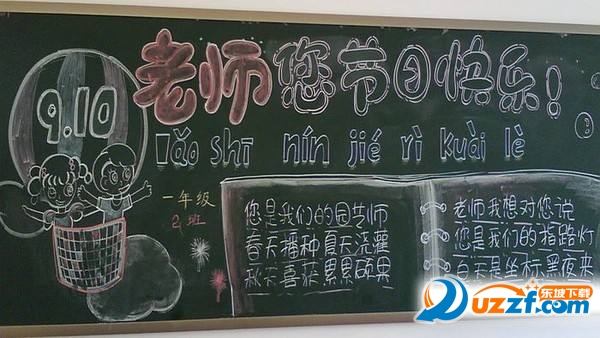 9.10
老师您节日快乐!
lǎo shī nín jié rì kuài lè
一年级
2班
您是我们的园艺师
春天播种夏天浇灌
秋天喜获累累硕果
老师我想对您说
您是我们的指路灯
白天是坐标黑夜来
东坡下载
uzzf.com